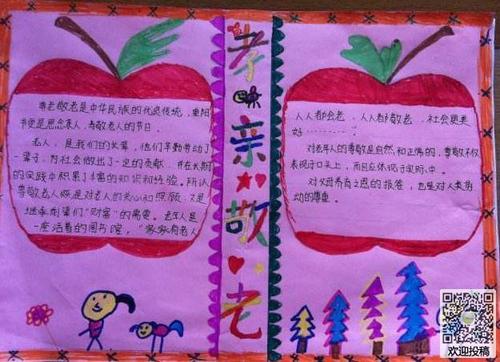 孝亲敬老
尊老敬老是中华民族的优良传统，重阳
节更是思念亲人，为敬老人的节日。
老人，是我们的长辈，他们辛勤劳动了
一辈子，为社会做出了一定的贡献，并在长期
的实践中积累了丰富的知识和经验。所以
尊敬老人既是对老人的关心和照顾，又是
继承前辈们“财富”的需要。老年人是
一座活着的图书馆，“家家有老人
人人都会老，人人都敬老，社会更美
好…………
对老年人的尊敬是自然和正常的，尊敬不仅
表现于口头上，而且应体现于实际中。
对父母养育之恩的报答，也是对人类劳
动的尊重。
欢迎投稿